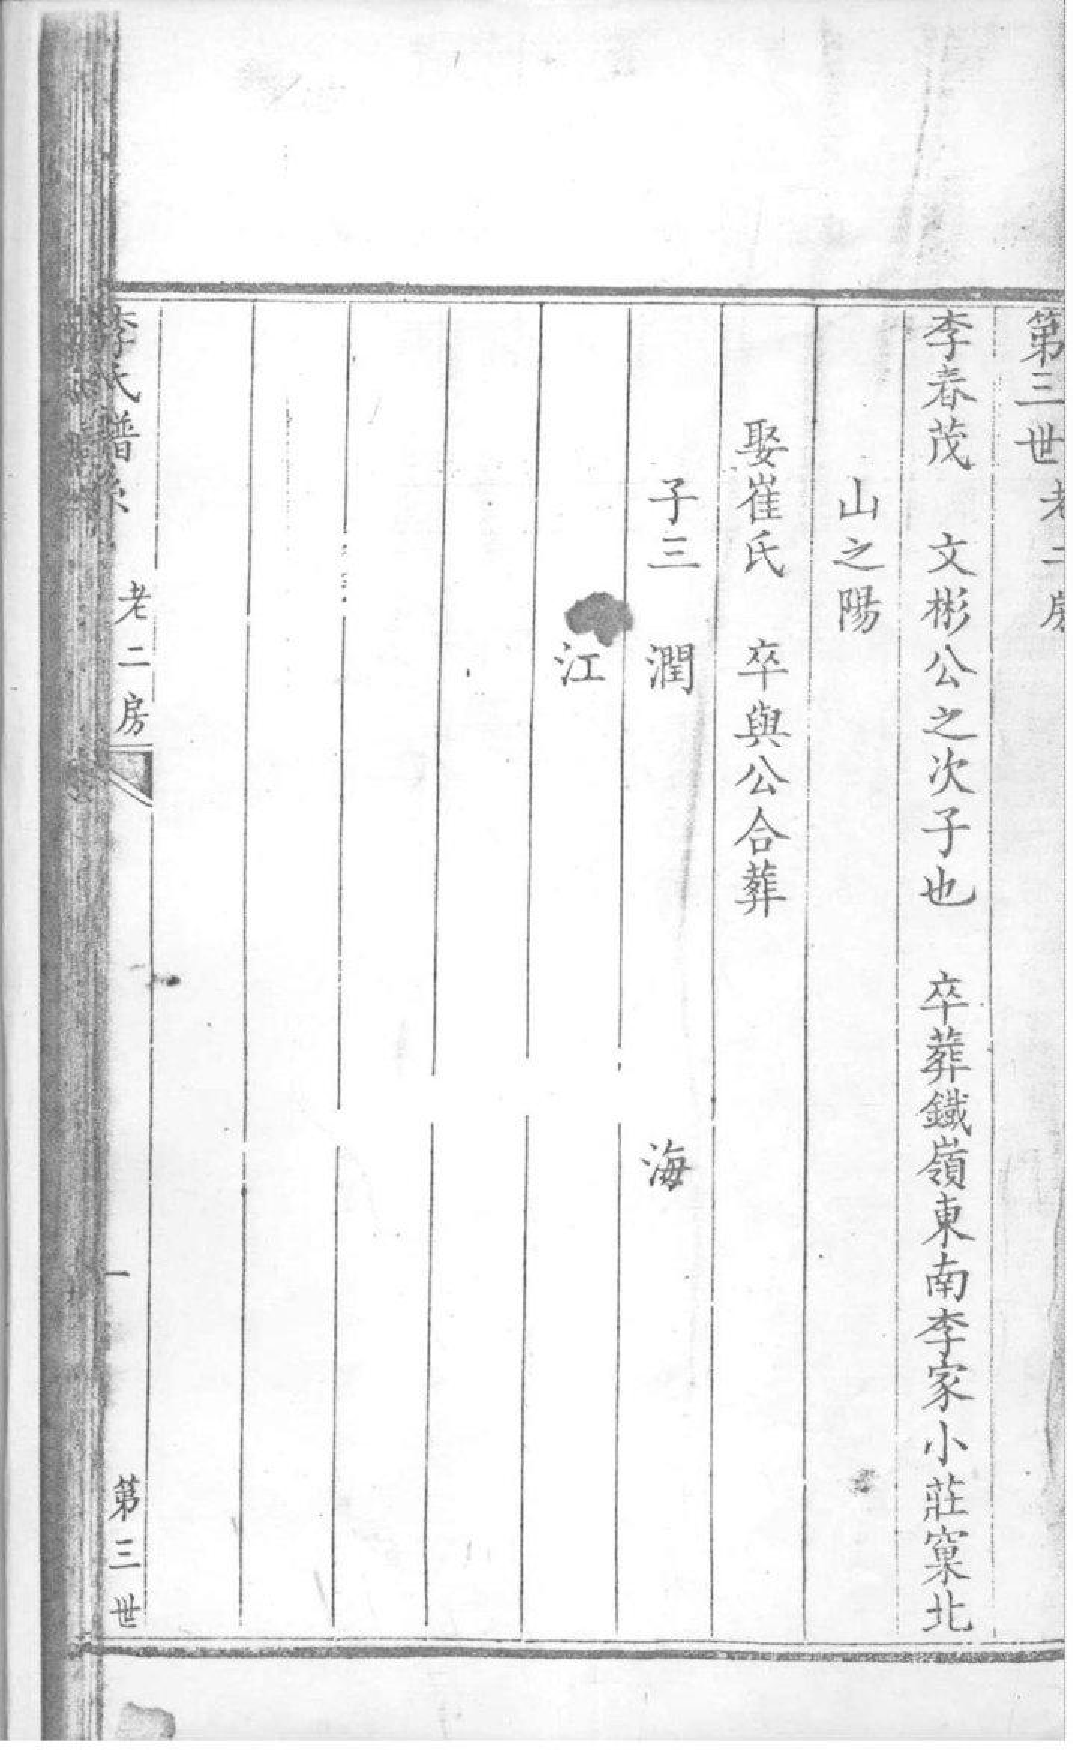 第三世老二房
李春茂 文彬公之次子也 卒葬鐵嶺東南李家小莊窠北
山之陽
娶崔氏 卒與公合葬
子三 潤 海
江
李氏譜系 老二房 一 第三世